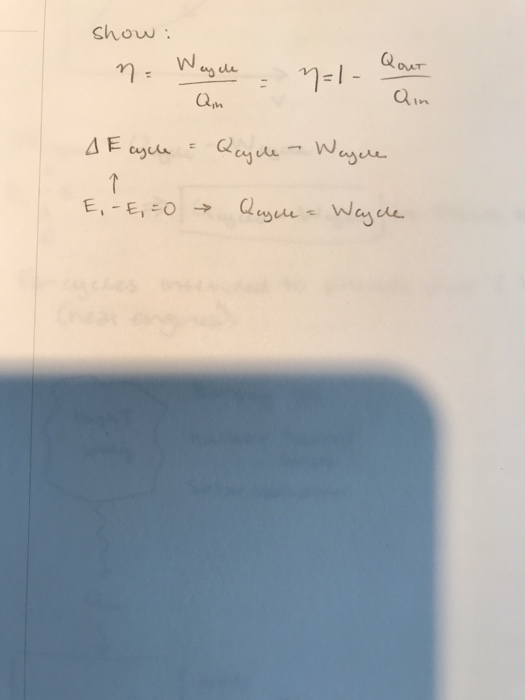 show:
η = Wcycle / Qin = η = 1 - QOUT / Qin
ΔE cycle = Qcycle - Wcycle
↑
E₁ - E₁ = 0 → Qcycle = Wcycle
cycles intended to
(heat engines)